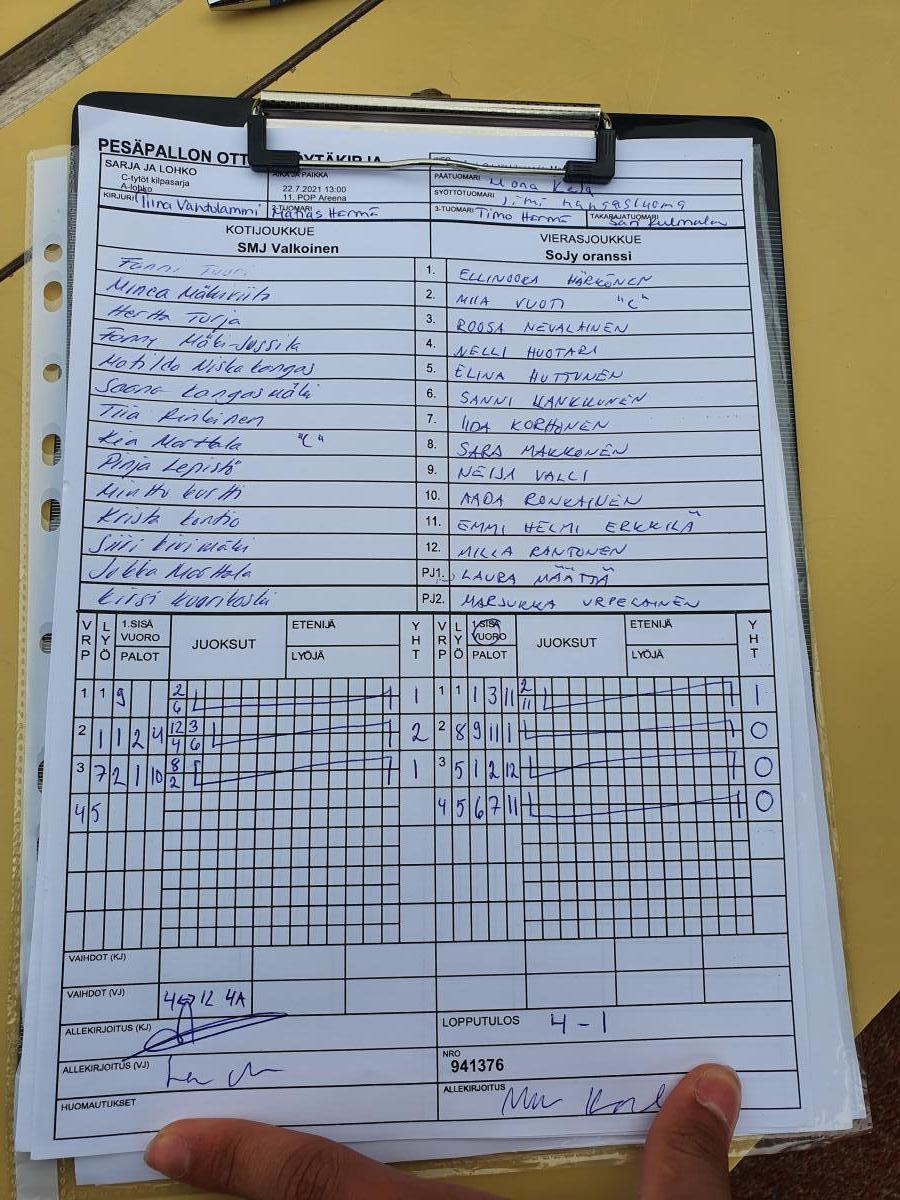 PESÄPALLON OTT ÖYTÄKIRJA
SARJA JA LOHKO
C-tytöt kilpasarja
A-lohko
AIKA JA PAIKKA
22.7.2021 13:00
11. POP Areena
PÄÄTUOMARI Mona
SYÖTTÖTUOMARI Jimi Kangasluoma
KIRJURI Tiina Vantulammi
2-TUOMARI Matias Hermä
3-TUOMARI Timo Hermä
TAKARAJATUOMARI Sari Kulmala
KOTIJOUKKUE
SMJ Valkoinen
VIERASJOUKKUE
SoJy oranssi
Fanni Tuuri 1. ELLINOORA HÄRKÖNEN
Minea Mäkiviita 2. MIIA VUOTI "C"
Hertta Turja 3. ROOSA NEVALAINEN
Fanny Mäki-Jussila 4. NELLI HUOTARI
Matilda Niskakangas 5. ELINA HUTTUNEN
Saana Kangasmäki 6. SANNI KANKKUNEN
Tiia Rinkinen 7. IIDA KORHONEN
Kia Marttala "C" 8. SARA MAKKONEN
Pinja Lepistö 9. NEIJA VALLI
Minttu Kurtti 10. AADA RONKAINEN
Krista Kontio 11. EMMI HELMI ERKKILÄ
Siiri Kivimäki 12. MILLA RANTONEN
Jukka Marttala PJ1. LAURA MÄÄTTÄ
Kirsi Kuorikoski PJ2. MARJUKKA URPELAINEN
VRP LYÖ 1.SISÄ VUORO PALOT JUOKSUT ETENIJÄ LYÖJÄ YHT VRP LYÖ 1.SISÄ VUORO PALOT JUOKSUT ETENIJÄ LYÖJÄ YHT
1 1 9 2/6 1 1 1 1 3 11 2/11 1
2 1 1 2 4 12/4 3/6 2 2 8 9 11 1 0
3 7 2 1 10 8/2 1 3 5 1 2 12 0
4 5 4 5 6 7 11 0
VAIHDOT (KJ)
VAIHDOT (VJ) 4↔12 4A
ALLEKIRJOITUS (KJ)
LOPPUTULOS 4-1
ALLEKIRJOITUS (VJ)
NRO
941376
HUOMAUTUKSET
ALLEKIRJOITUS